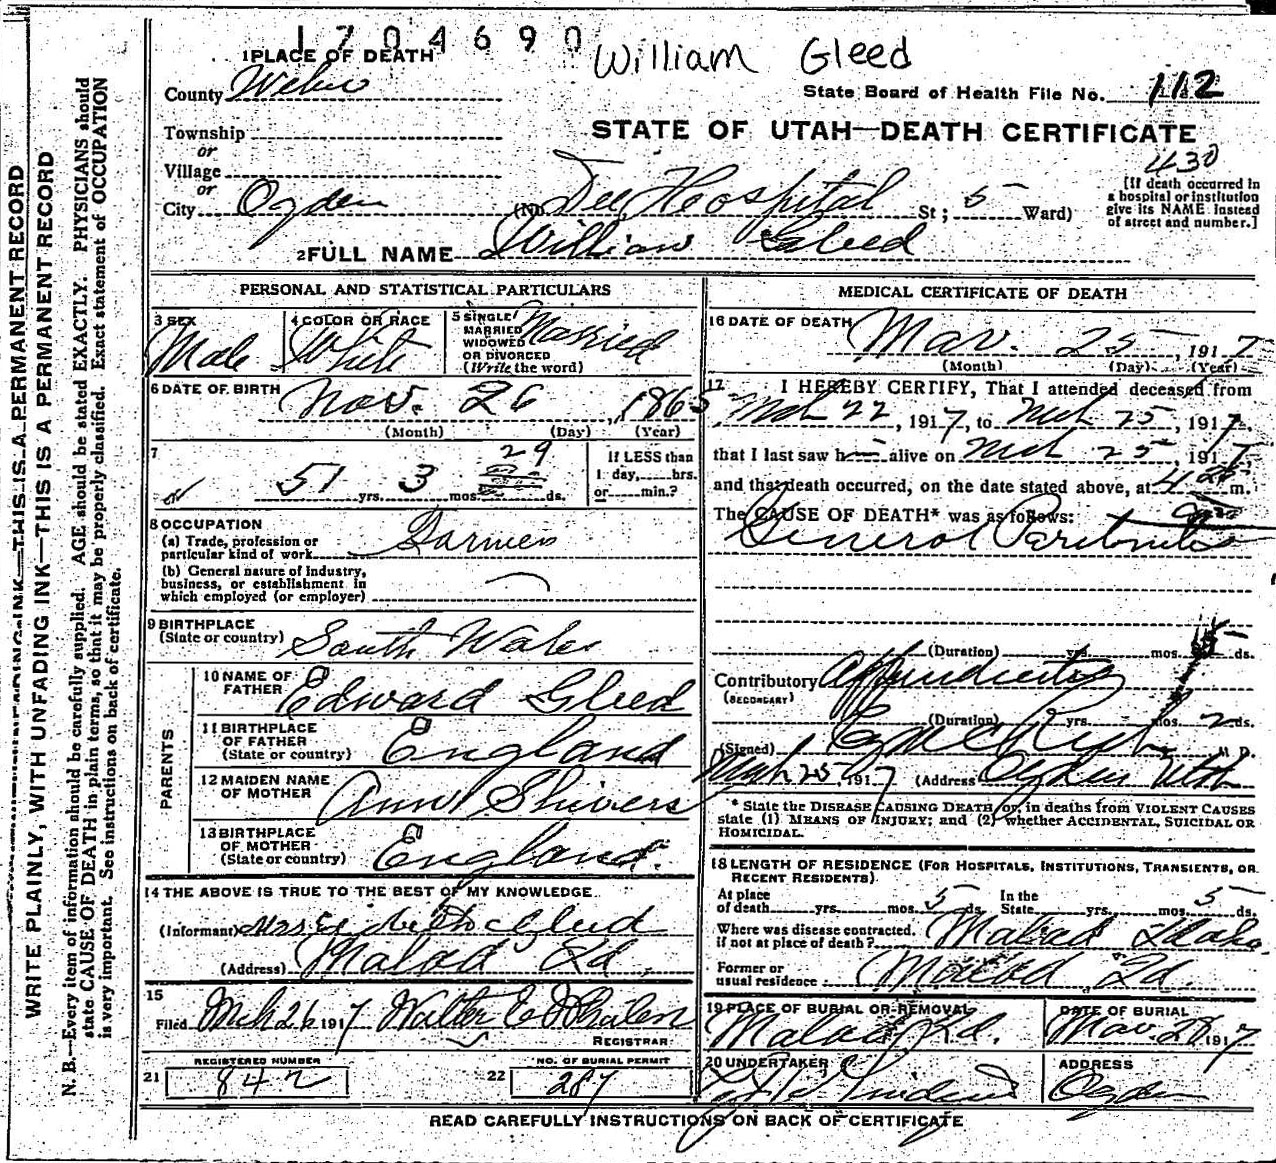 1704690
William Gleed
1 PLACE OF DEATH
County Weber
State Board of Health File No. 112
Township
or
STATE OF UTAH—DEATH CERTIFICATE
Village
or
430
City Ogden (No. Dee Hospital St; 5 Ward)
[If death occurred in
a hospital or institution
give its NAME instead
of street and number.]
2 FULL NAME William Gleed
PERSONAL AND STATISTICAL PARTICULARS
3 SEX
Male
4 COLOR OR RACE
White
5 SINGLE
MARRIED
WIDOWED
OR DIVORCED
(Write the word)
Married
6 DATE OF BIRTH
Nov. 26, 1865
(Month) (Day) (Year)
7
51 yrs. 3 mos. 29 ds.
If LESS than
1 day,......hrs.
or......min.?
8 OCCUPATION
(a) Trade, profession or
particular kind of work Farmer
(b) General nature of industry,
business, or establishment in
which employed (or employer)
9 BIRTHPLACE
(State or country) South Wales
PARENTS
10 NAME OF
FATHER Edward Gleed
11 BIRTHPLACE
OF FATHER
(State or country) England
12 MAIDEN NAME
OF MOTHER Ann Shivers
13 BIRTHPLACE
OF MOTHER
(State or country) England
14 THE ABOVE IS TRUE TO THE BEST OF MY KNOWLEDGE
(Informant) Mrs Gleed
(Address) Malad Id.
15
Filed Mch 26 1917 Walter E Whalen
REGISTRAR
REGISTERED NUMBER
21 842
NO. OF BURIAL PERMIT
22 287
MEDICAL CERTIFICATE OF DEATH
16 DATE OF DEATH
Mar. 25, 1917
(Month) (Day) (Year)
17 I HEREBY CERTIFY, That I attended deceased from
Mch 22, 1917, to Mch 25, 1917.
that I last saw h alive on Mch 25, 1917
and that death occurred, on the date stated above, at 4 m.
The CAUSE OF DEATH* was as follows:
General Peritonitis
(Duration) yrs. mos. 5 ds.
Contributory Appendicitis
(SECONDARY)
(Duration) yrs. mos. 2 ds.
(Signed) M D.
Mch 25, 1917 (Address) Ogden Utah
* State the DISEASE CAUSING DEATH or, in deaths from VIOLENT CAUSES
state (1) MEANS OF INJURY; and (2) whether ACCIDENTAL, SUICIDAL OR
HOMICIDAL.
18 LENGTH OF RESIDENCE (FOR HOSPITALS, INSTITUTIONS, TRANSIENTS, OR
RECENT RESIDENTS)
At place
of death yrs. mos. 5 ds.
In the
State yrs. mos. 5 ds.
Where was disease contracted,
if not at place of death? Malad Idaho
Former or
usual residence Malad Id.
19 PLACE OF BURIAL OR REMOVAL
Malad Id.
DATE OF BURIAL
Mar. 28 1917
20 UNDERTAKER
ADDRESS
Ogden
READ CAREFULLY INSTRUCTIONS ON BACK OF CERTIFICATE
WRITE PLAINLY, WITH UNFADING INK—THIS IS A PERMANENT RECORD
N. B.—Every item of information should be carefully supplied. AGE should be stated EXACTLY. PHYSICIANS should
state CAUSE OF DEATH in plain terms, so that it may be properly classified. Exact statement of OCCUPATION
is very important. See instructions on back of certificate.